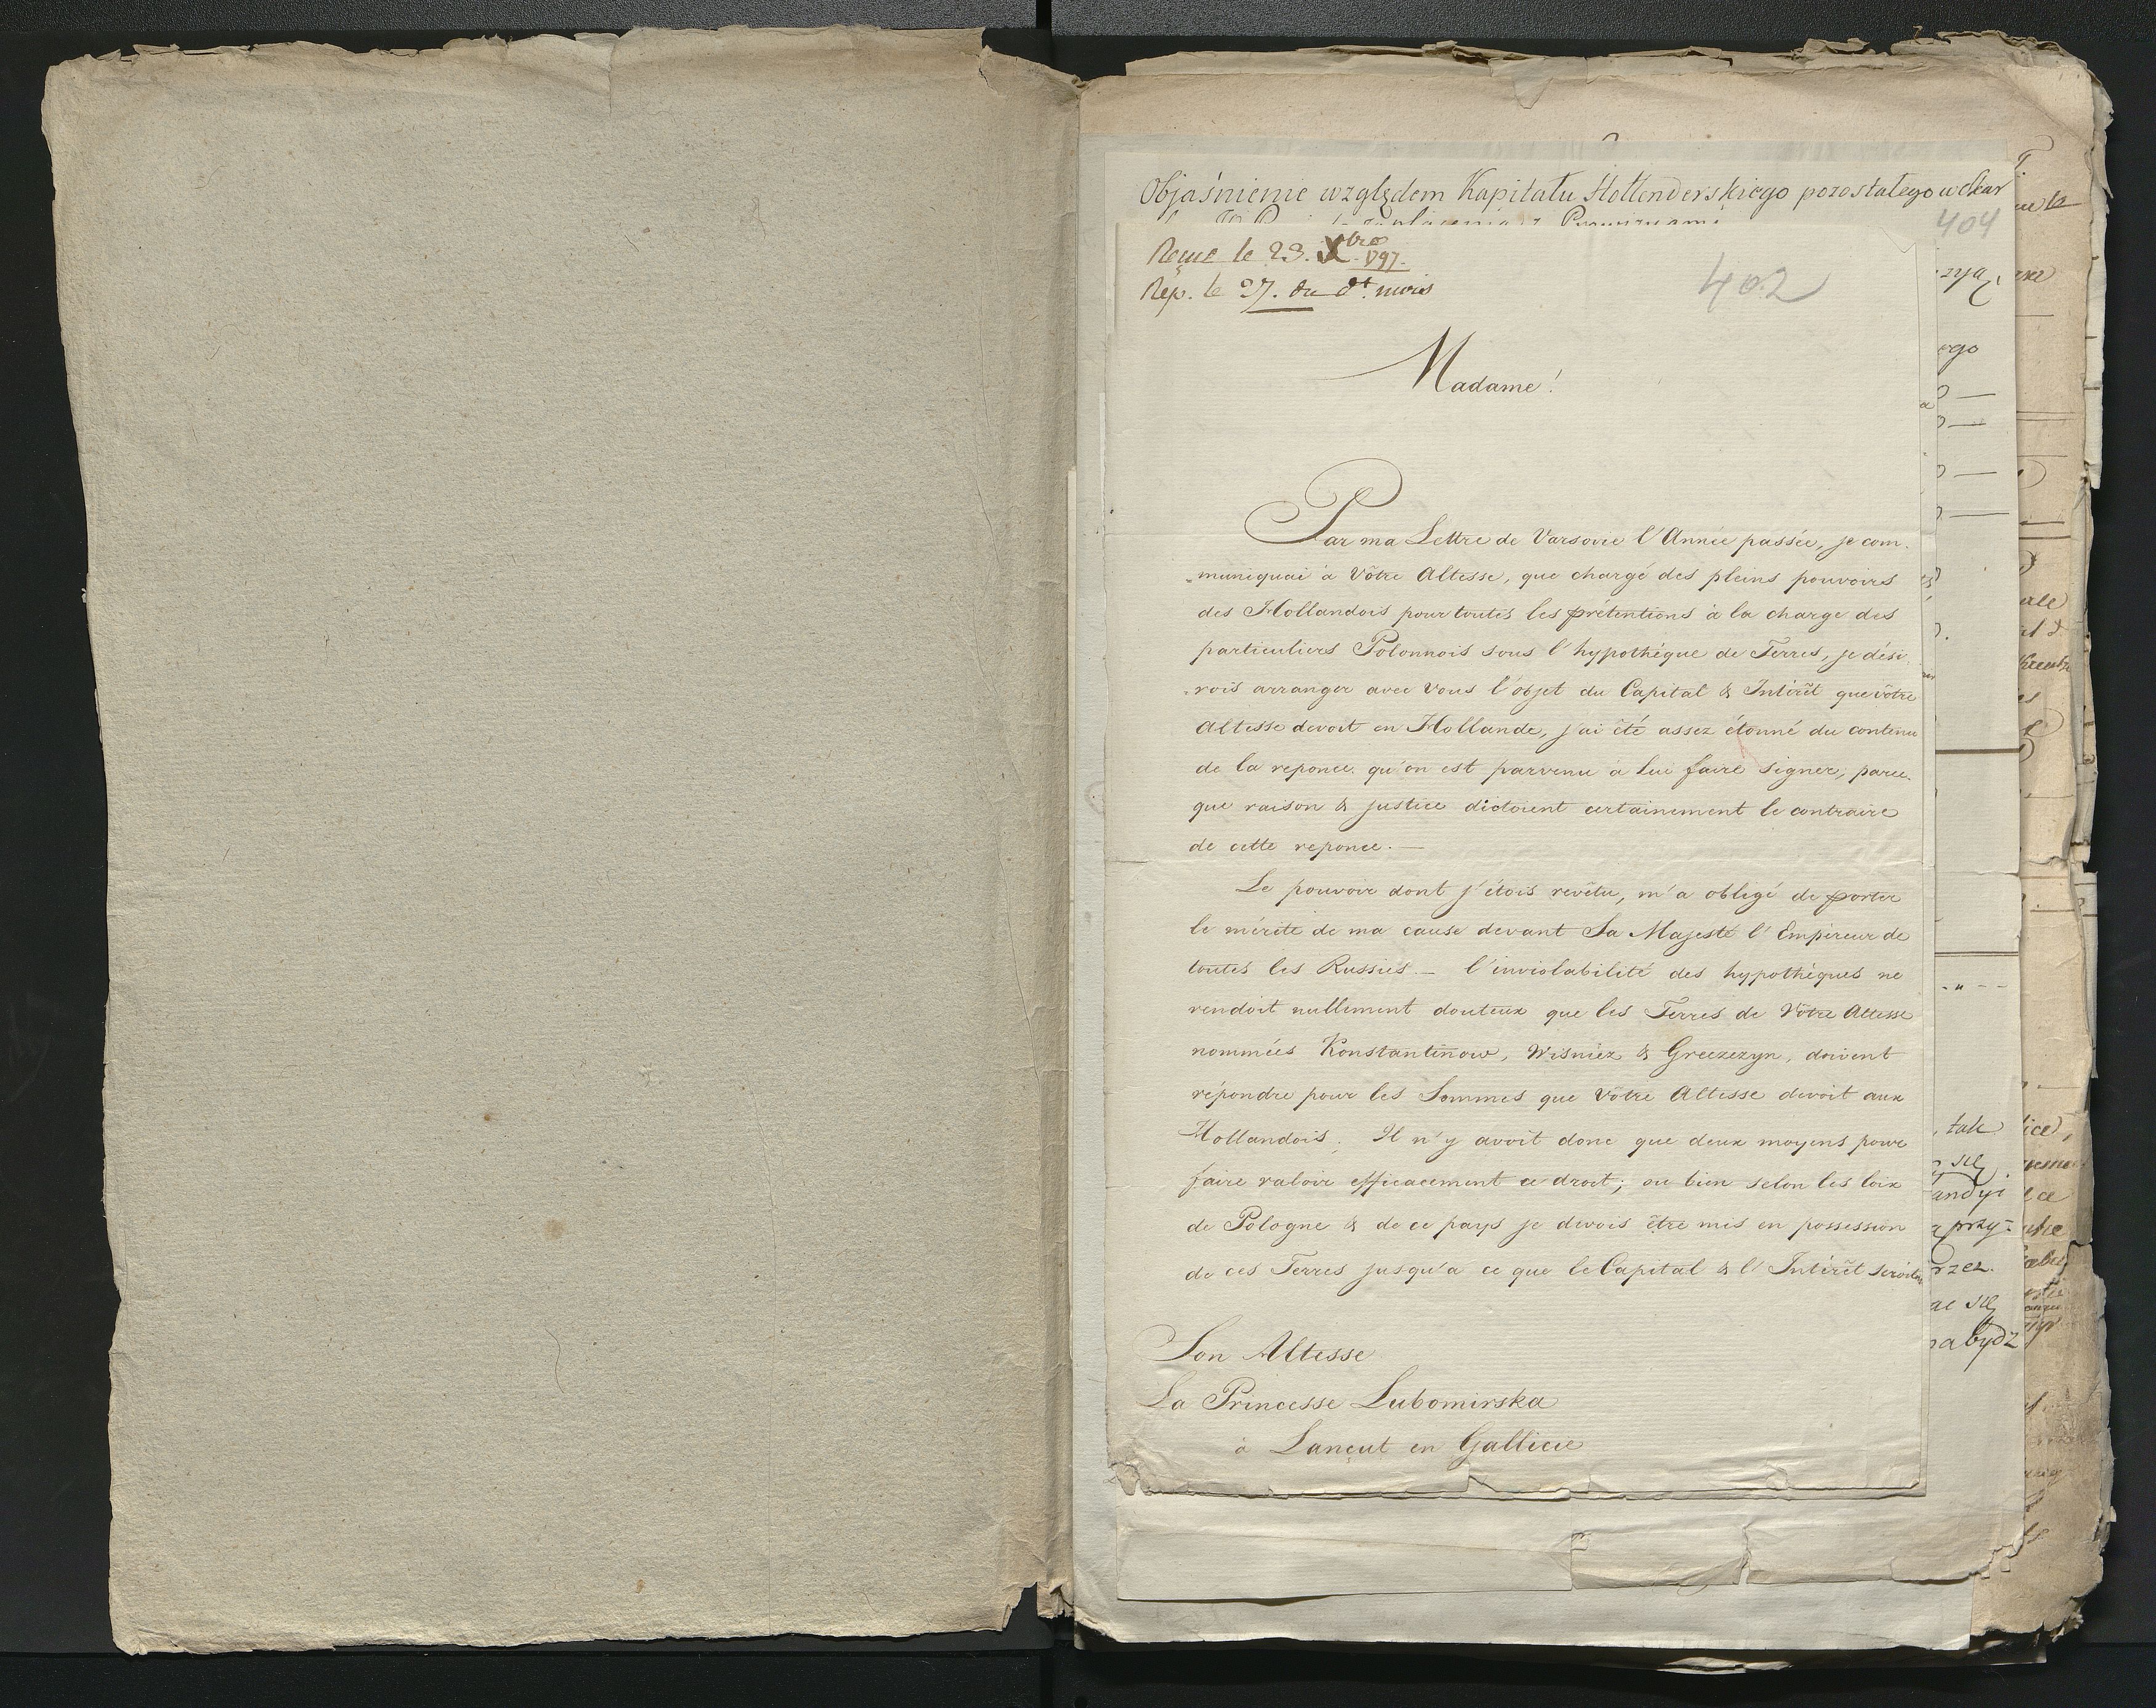 Objaśnienie względem Kapitału Hollenderskiego pozostałego w Skar
404
Reçue le 23. Xbre 1797.
Rep. le 27. du dt. mois
402
Madame!
Par ma Lettre de Varsovie l'Année passée, je com-
-muniquai à Vôtre Altesse, que chargé des pleins pouvoirs
des Hollandois pour toutes les prétentions à la charge des
particuliers Polonnois sous l'hypothéque de Terres, je dési-
-rois arranger avec Vous l'objet du Capital & Intérêt que vôtre
Altesse devoit en Hollande, j'ai été assez étonné du contenu
de la reponce qu'on est parvenu à Lui faire signer, parce
que raison & justice dictoient certainement le contraire
de cette reponce.—
Le pouvoir dont j'étois revêtu, m'a obligé de porter
le mérite de ma cause devant Sa Majesté l'Empereur de
toutes les Russies.— l'inviolabilité des hypothéques ne
rendoit nullement douteux que les Terres de Vôtre Altesse
nommées Konstantinow, Wisniéz & Greczezyn, doivent
répondre pour les Sommes que Vôtre Altesse devoit aux
Hollandois; Il n'y avoit donc que deux moyens pour
faire valoir efficacement ce droit; ou bien selon les loix
de Pologne & de ce pays je devois être mis en possession
de ces Terres jusqu'à ce que le Capital & l'Intérêt seroient
Son Altesse
La Princesse Lubomirska
à Lançut en Gallicie
ego
tak
się
andyi
przy-
rzez.
ac się
na bydz